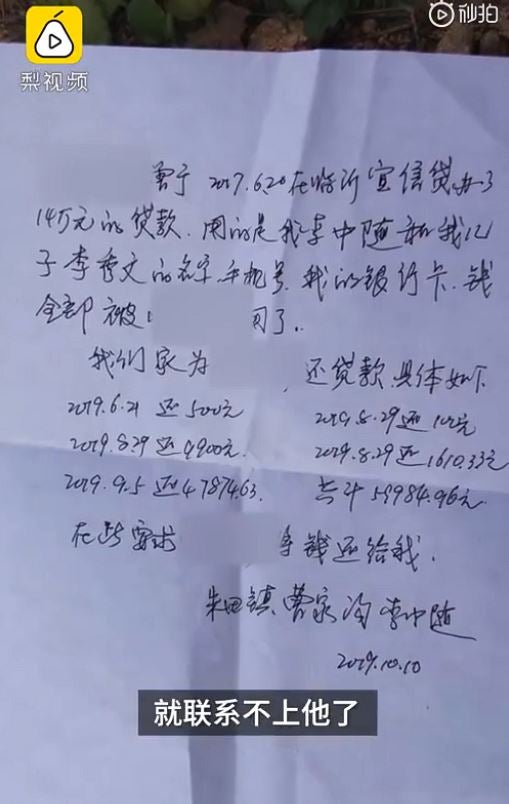 秒拍
梨视频
曾于2017.6.20在临沂宜信贷办了
14万元的贷款.用的是我李中随和我儿
子李秀文的名字.手机号.我的银行卡.钱
全部被 用了..
我们家为 ,还贷款具体如下
2019.6.21还500元 2019.8.29还100元
2019.8.29还9900元. 2019.8.29还1610.33元
2019.9.5还47874.63. 共计59984.96元.
在此要求 钱还给我.
朱田镇曹家沟李中随
2019.10.10
就联系不上他了